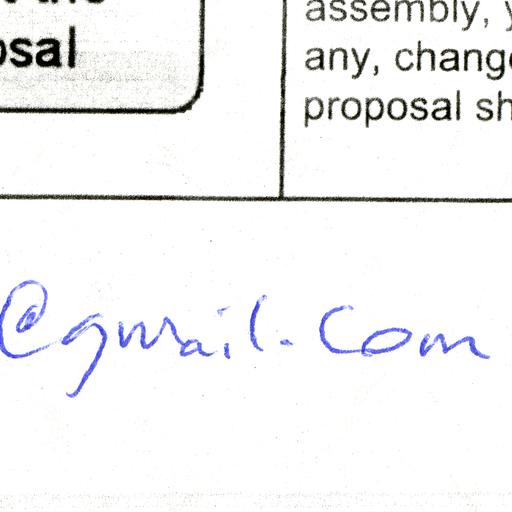 osal
assembly, y
any, chang
proposal sh
@gmail.com